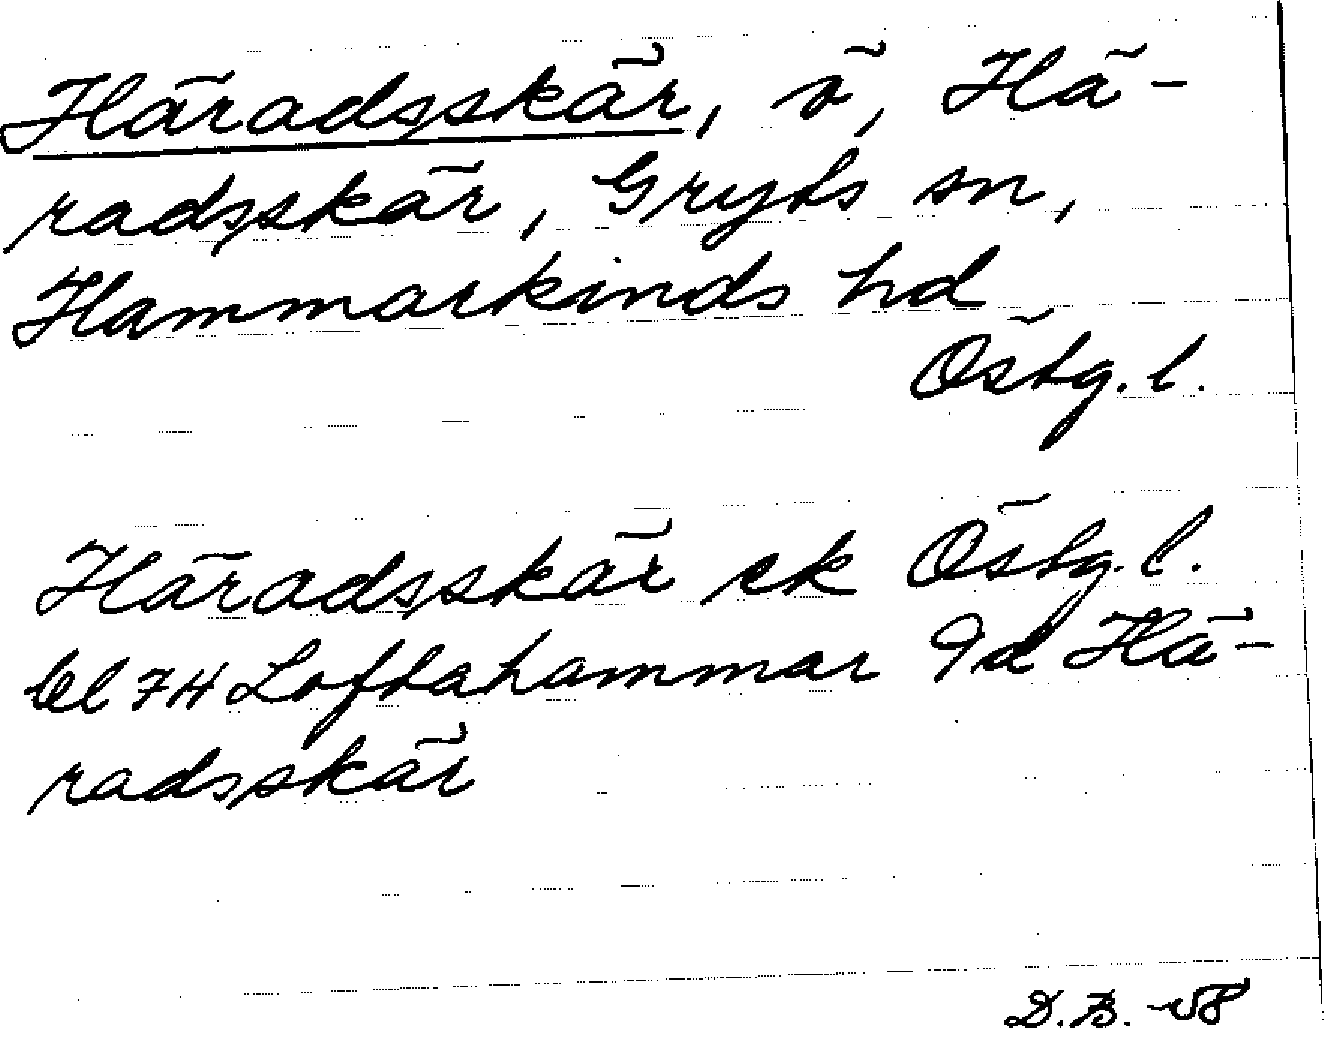 Häradsskär, ö, Hä-
radsskär, Gryts sn,
Hammarkinds hd
Östg. l.
Häradsskär ek Östg. l.
bl 7H Loftahammar 9d Hä-
radsskär
D.B. -58